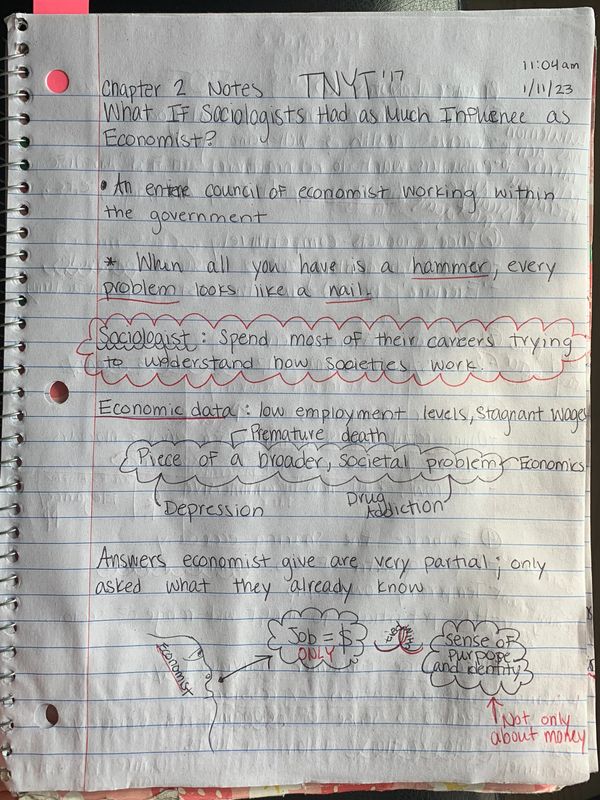 11:04am
Chapter 2 Notes TNYT '17 1/11/23
What If Sociologists Had as Much Influence as
Economist?
• An entire council of economist working within
the government
* When all you have is a hammer, every
problem looks like a nail.
Sociologist: Spend most of their careers trying
to understand how societies work.
Economic data: low employment levels, Stagnant wages
Premature death
Piece of a broader, societal problem Economics
Depression
Drug
Addiction
Answers economist give are very partial; only
asked what they already know
Economist
Job = $
ONLY
sense of
purpose
and identity
Not only
about money